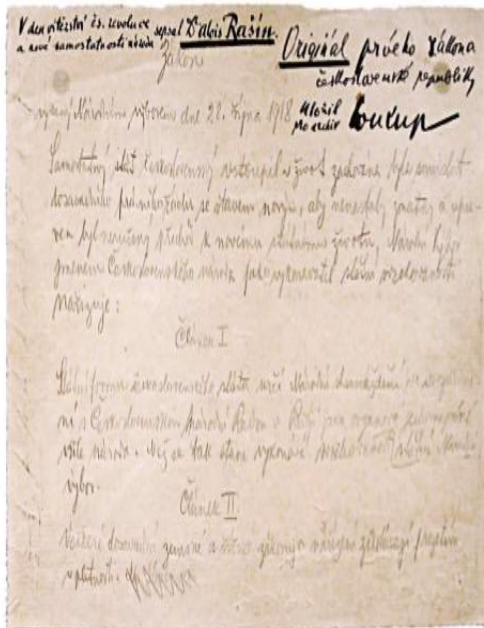 V den vítězství čs. revoluce
a nové samostatnosti národa sepsal Dr Alois Rašín.
Originál prvého zákona
československé republiky
uložil
do archiv Soukup
Zákon
vydaný Národním výborem dne 28. října 1918
Samostatný stát československý vstoupil v život zachována byla souvislost
dosavadního právního řádu se stavem novým, aby nenastaly zmatky a upra-
ven byl nerušený přechod k novému státnímu životu, Národní výbor
jménem Československého národa jako vykonavatel státní svrchovanosti
nařizuje:
Článek I
Státní formu československého státu určí Národní shromáždění ve srozumě-
ní s Československou Národní Radou v Paříži jako orgány
vůle národa. Než se tak stane vykonává státní Národní
výbor.
Článek II
Veškeré dosavadní zemské a říšské zákony a nařízení zůstávají prozatím
v platnosti.